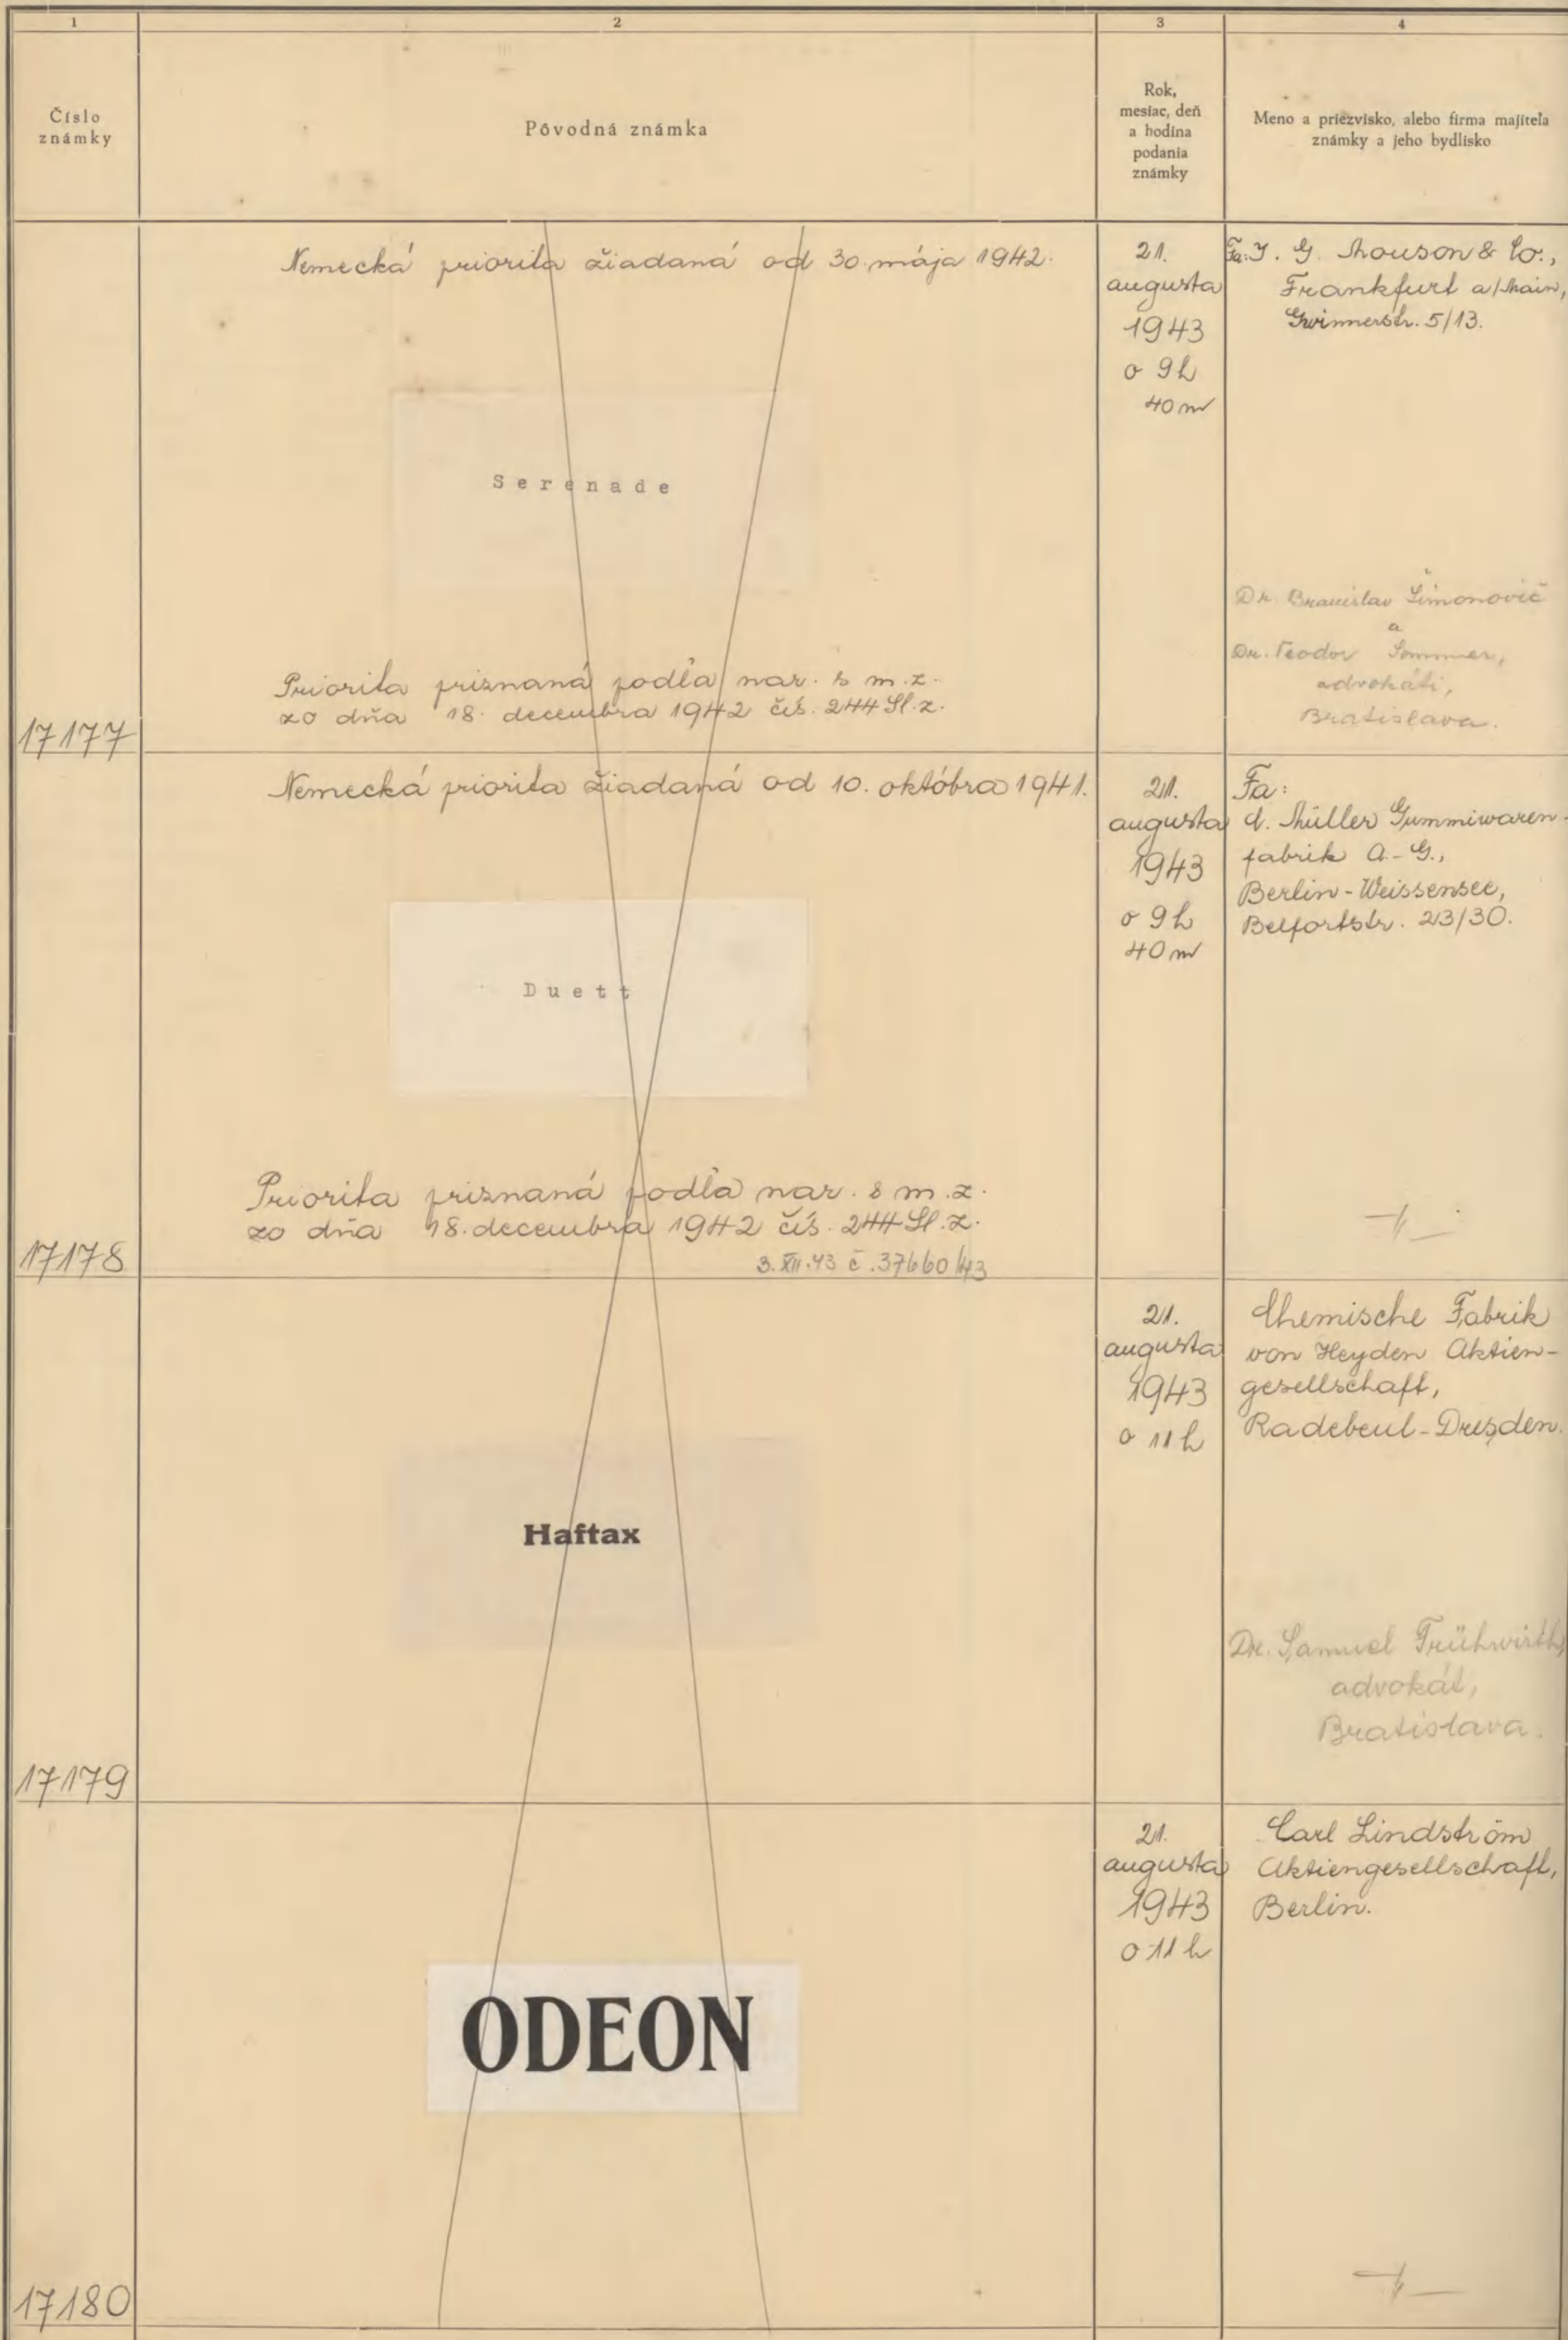 1
2
3
4
Číslo
známky
Pôvodná známka
Rok,
mesiac, deň
a hodina
podania
známky
Meno a priezvisko, alebo firma majiteľa
známky a jeho bydlisko
17177
Nemecká priorita žiadaná od 30. mája 1942.
Serenade
Priorita priznaná podľa nar. s m. z.
zo dňa 18. decembra 1942 čís. 244 Sl. z.
21.
augusta
1943
o 9h
40 m
Fa: J. G. Mouson & Co.,
Frankfurt a/Main,
Gwinnerstr. 5/13.
Dr. Branislav Šimonovič
a
Dr. Teodor Sommer,
advokáti,
Bratislava.
17178
Nemecká priorita žiadaná od 10. októbra 1941.
Duett
Priorita priznaná podľa nar. s m. z.
zo dňa 18. decembra 1942 čís. 244 Sl. z.
3. XII. 43 č. 37660/43
21.
augusta
1943
o 9h
40 m
Fa:
Müller Gummiwaren-
fabrik A.-G.,
Berlin-Weissensee,
Belfortstr. 23/30.
17179
Haftax
21.
augusta
1943
o 11 h
Chemische Fabrik
von Heyden Aktien-
gesellschaft,
Radebeul-Dresden.
Dr. Samuel Frühwirth,
advokát,
Bratislava.
17180
ODEON
21.
augusta
1943
o 11 h
Carl Lindström
Aktiengesellschaft,
Berlin.